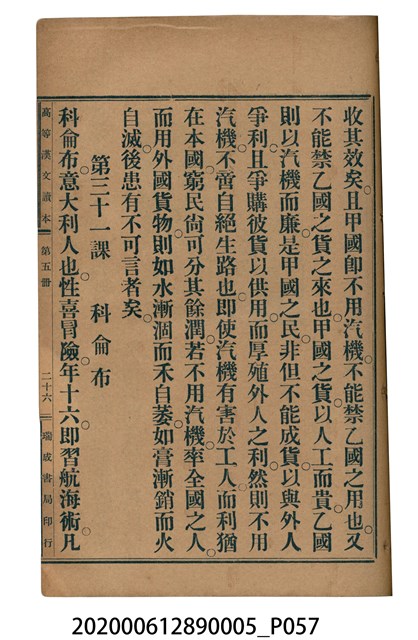 收其效矣。且甲國卽不用汽機。不能禁乙國之用也。又
不能禁乙國之貨之來也。甲國之貨以人工而貴。乙國
則以汽機而廉。是甲國之民。非但不能成貨以與外人
爭利。且爭購彼貨以供用。而厚殖外人之利。然則不用
汽機。不啻自絕生路也。卽使汽機有害於工人。而利猶
在本國。窮民尙可分其餘潤。若不用汽機。率全國之人。
而用外國貨物。則如水漸涸而禾自萎。如膏漸銷而火
自滅。後患有不可言者矣。
第三十一課 科侖布
科侖布。意大利人也。性喜冒險。年十六。卽習航海術。凡
高等漢文讀本 第五冊 二十六 瑞成書局印行
202000612890005_P057